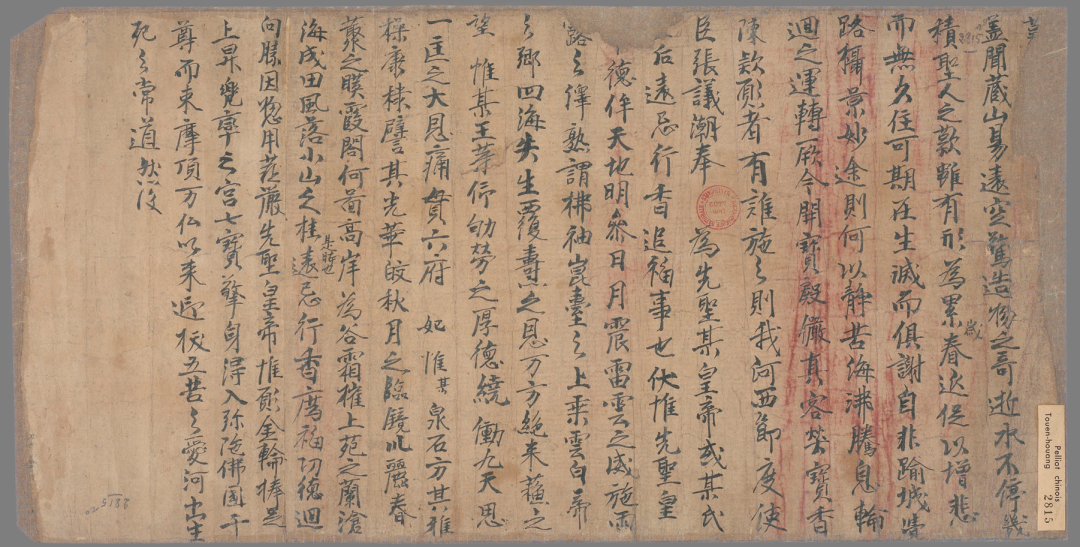 蓋聞藏山易遠空驚造物之奇逝水不停幾
積聖人之歎雖有形為累春近促以增悲
歲
而無久住可期在生滅而俱謝自非踰城
路攝景妙途則何以靜苦海沸騰息輪
迴之運轉厥今開寶殿儼真容焚寶香
陳欵願者有誰施之則我河西節度使
臣張議潮奉 為先聖某皇帝或某氏
后遠忌行香追福事也伏惟先聖皇
德侔天地明參日月震雷雲之威施雨
路之澤熟謂拂袖崑臺之上乘雲白帝
之鄉四海失生覆燾之恩万方絕来蘇之
望 惟某王芽仔劬勞之厚德繞働九天思
一匡之大恩痛貫六府 妃 惟某泉石方其雅
操康棣譬其光華皎秋月之臨鏡比麗春
蘂之暎霞閣何啚高岸為谷霜摧上苑之蘭滄
海成田風落小山之桂遠忌行香廌福切德迴
某時也
向勝因惣用莊嚴先聖皇帝惟願金輪捧足
上昇兜率之宮七寶擎身得入弥陁佛國千
尊而来摩頂万仏以来迎 五苦之愛河出生
死之常道 然後
3815
5188
Pelliot chinois
Touen-houang 2815